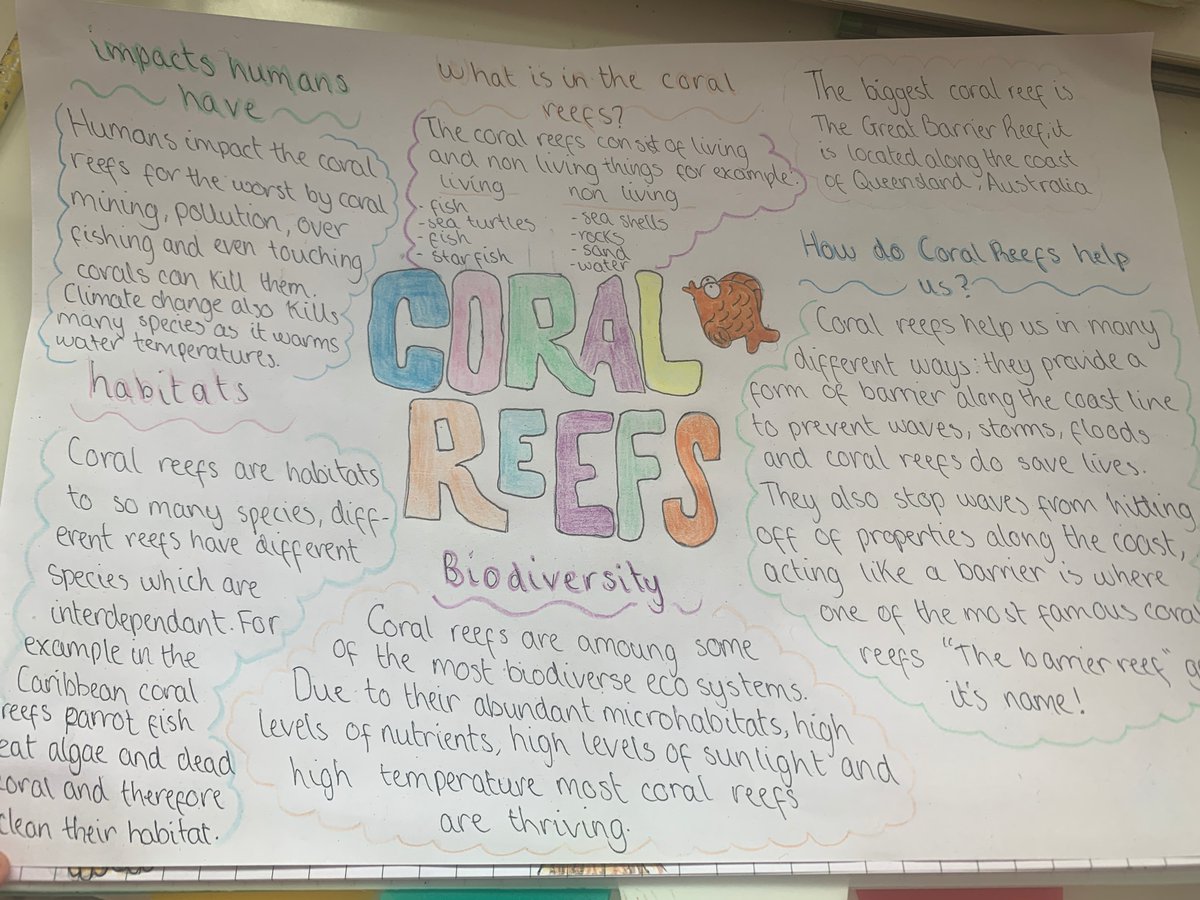 impacts humans
have
Humans impact the coral
reefs for the worst by coral
mining, pollution, over
fishing and even touching
corals can kill them.
Climate change also kills
many species as it warms
water temperatures.
habitats
Coral reefs are habitats
to so many species, diff-
erent reefs have different
species which are
interdependant. For
example in the
Caribbean coral
reefs parrot fish
eat algae and dead
coral and therefore
clean their habitat.
What is in the coral
reefs?
The coral reefs consist of living
and non living things for example:
living
- fish
- sea turtles
- fish
- starfish
non living
- sea shells
- rocks
- sand
- water
CORAL
REEFS
Biodiversity
Coral reefs are amoung some
of the most biodiverse eco systems.
Due to their abundant microhabitats, high
levels of nutrients, high levels of sunlight and
high temperature most coral reefs
are thriving.
The biggest coral reef is
The Great Barrier Reef, it
is located along the coast
of Queensland, Australia
How do Coral Reefs help
us?
Coral reefs help us in many
different ways: they provide a
form of barrier along the coast line
to prevent waves, storms, floods
and coral reefs do save lives.
They also stop waves from hitting
off of properties along the coast,
acting like a barrier is where
one of the most famous coral
reefs "The barrier reef" g
it's name!